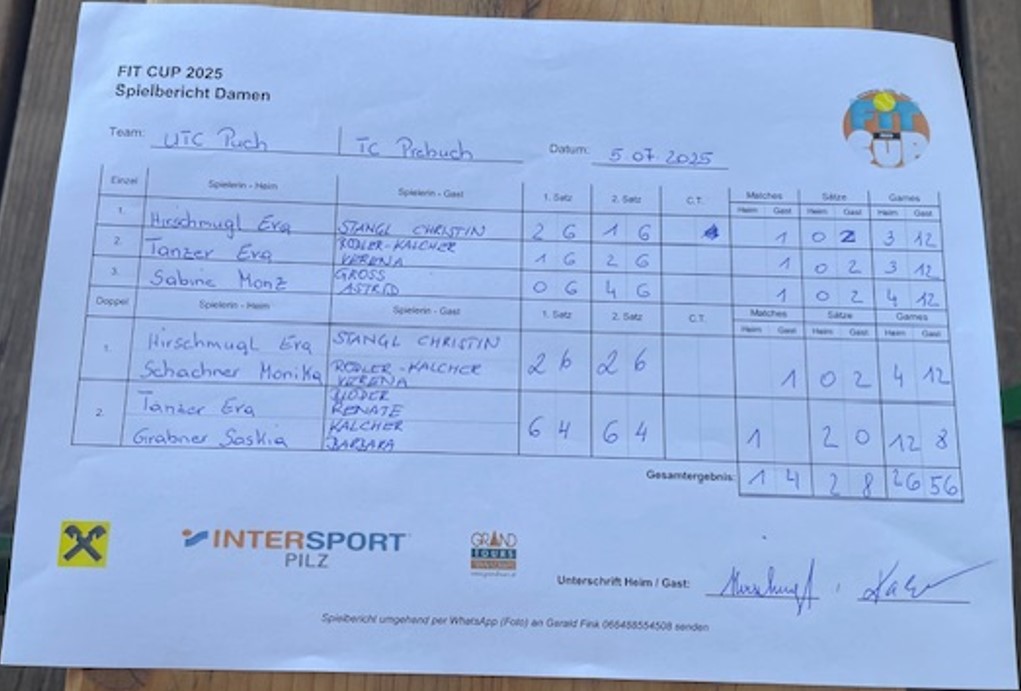 FIT CUP 2025
Spielbericht Damen
FIT
CUP
Team: UTC Puch TC Prebuch Datum: 5.07.2025
Einzel Spielerin - Heim Spielerin - Gast 1. Satz 2. Satz C.T. Matches Sätze Games
Heim Gast Heim Gast Heim Gast
1. Hirschmugl Eva STANGL CHRISTIN 2 6 1 6 1 0 2 3 12
2. Tanzer Eva RODLER-KALCHER VERENA 1 6 2 6 1 0 2 3 12
3. Sabine Monz GROSS ASTRID 0 6 4 6 1 0 2 4 12
Doppel Spielerin - Heim Spielerin - Gast 1. Satz 2. Satz C.T. Matches Sätze Games
Heim Gast Heim Gast Heim Gast
1. Hirschmugl Eva STANGL CHRISTIN
Schachner Monika RODLER-KALCHER VERENA 2 6 2 6 1 0 2 4 12
2. Tanzer Eva RENATE
Grabner Saskia KALCHER BARBARA 6 4 6 4 1 2 0 12 8
Gesamtergebnis: 1 4 2 8 26 56
INTERSPORT
PILZ
GRAND
TOURS
Unterschrift Heim / Gast:
Spielbericht umgehend per WhatsApp (Foto) an Gerald Fink 066488554508 senden